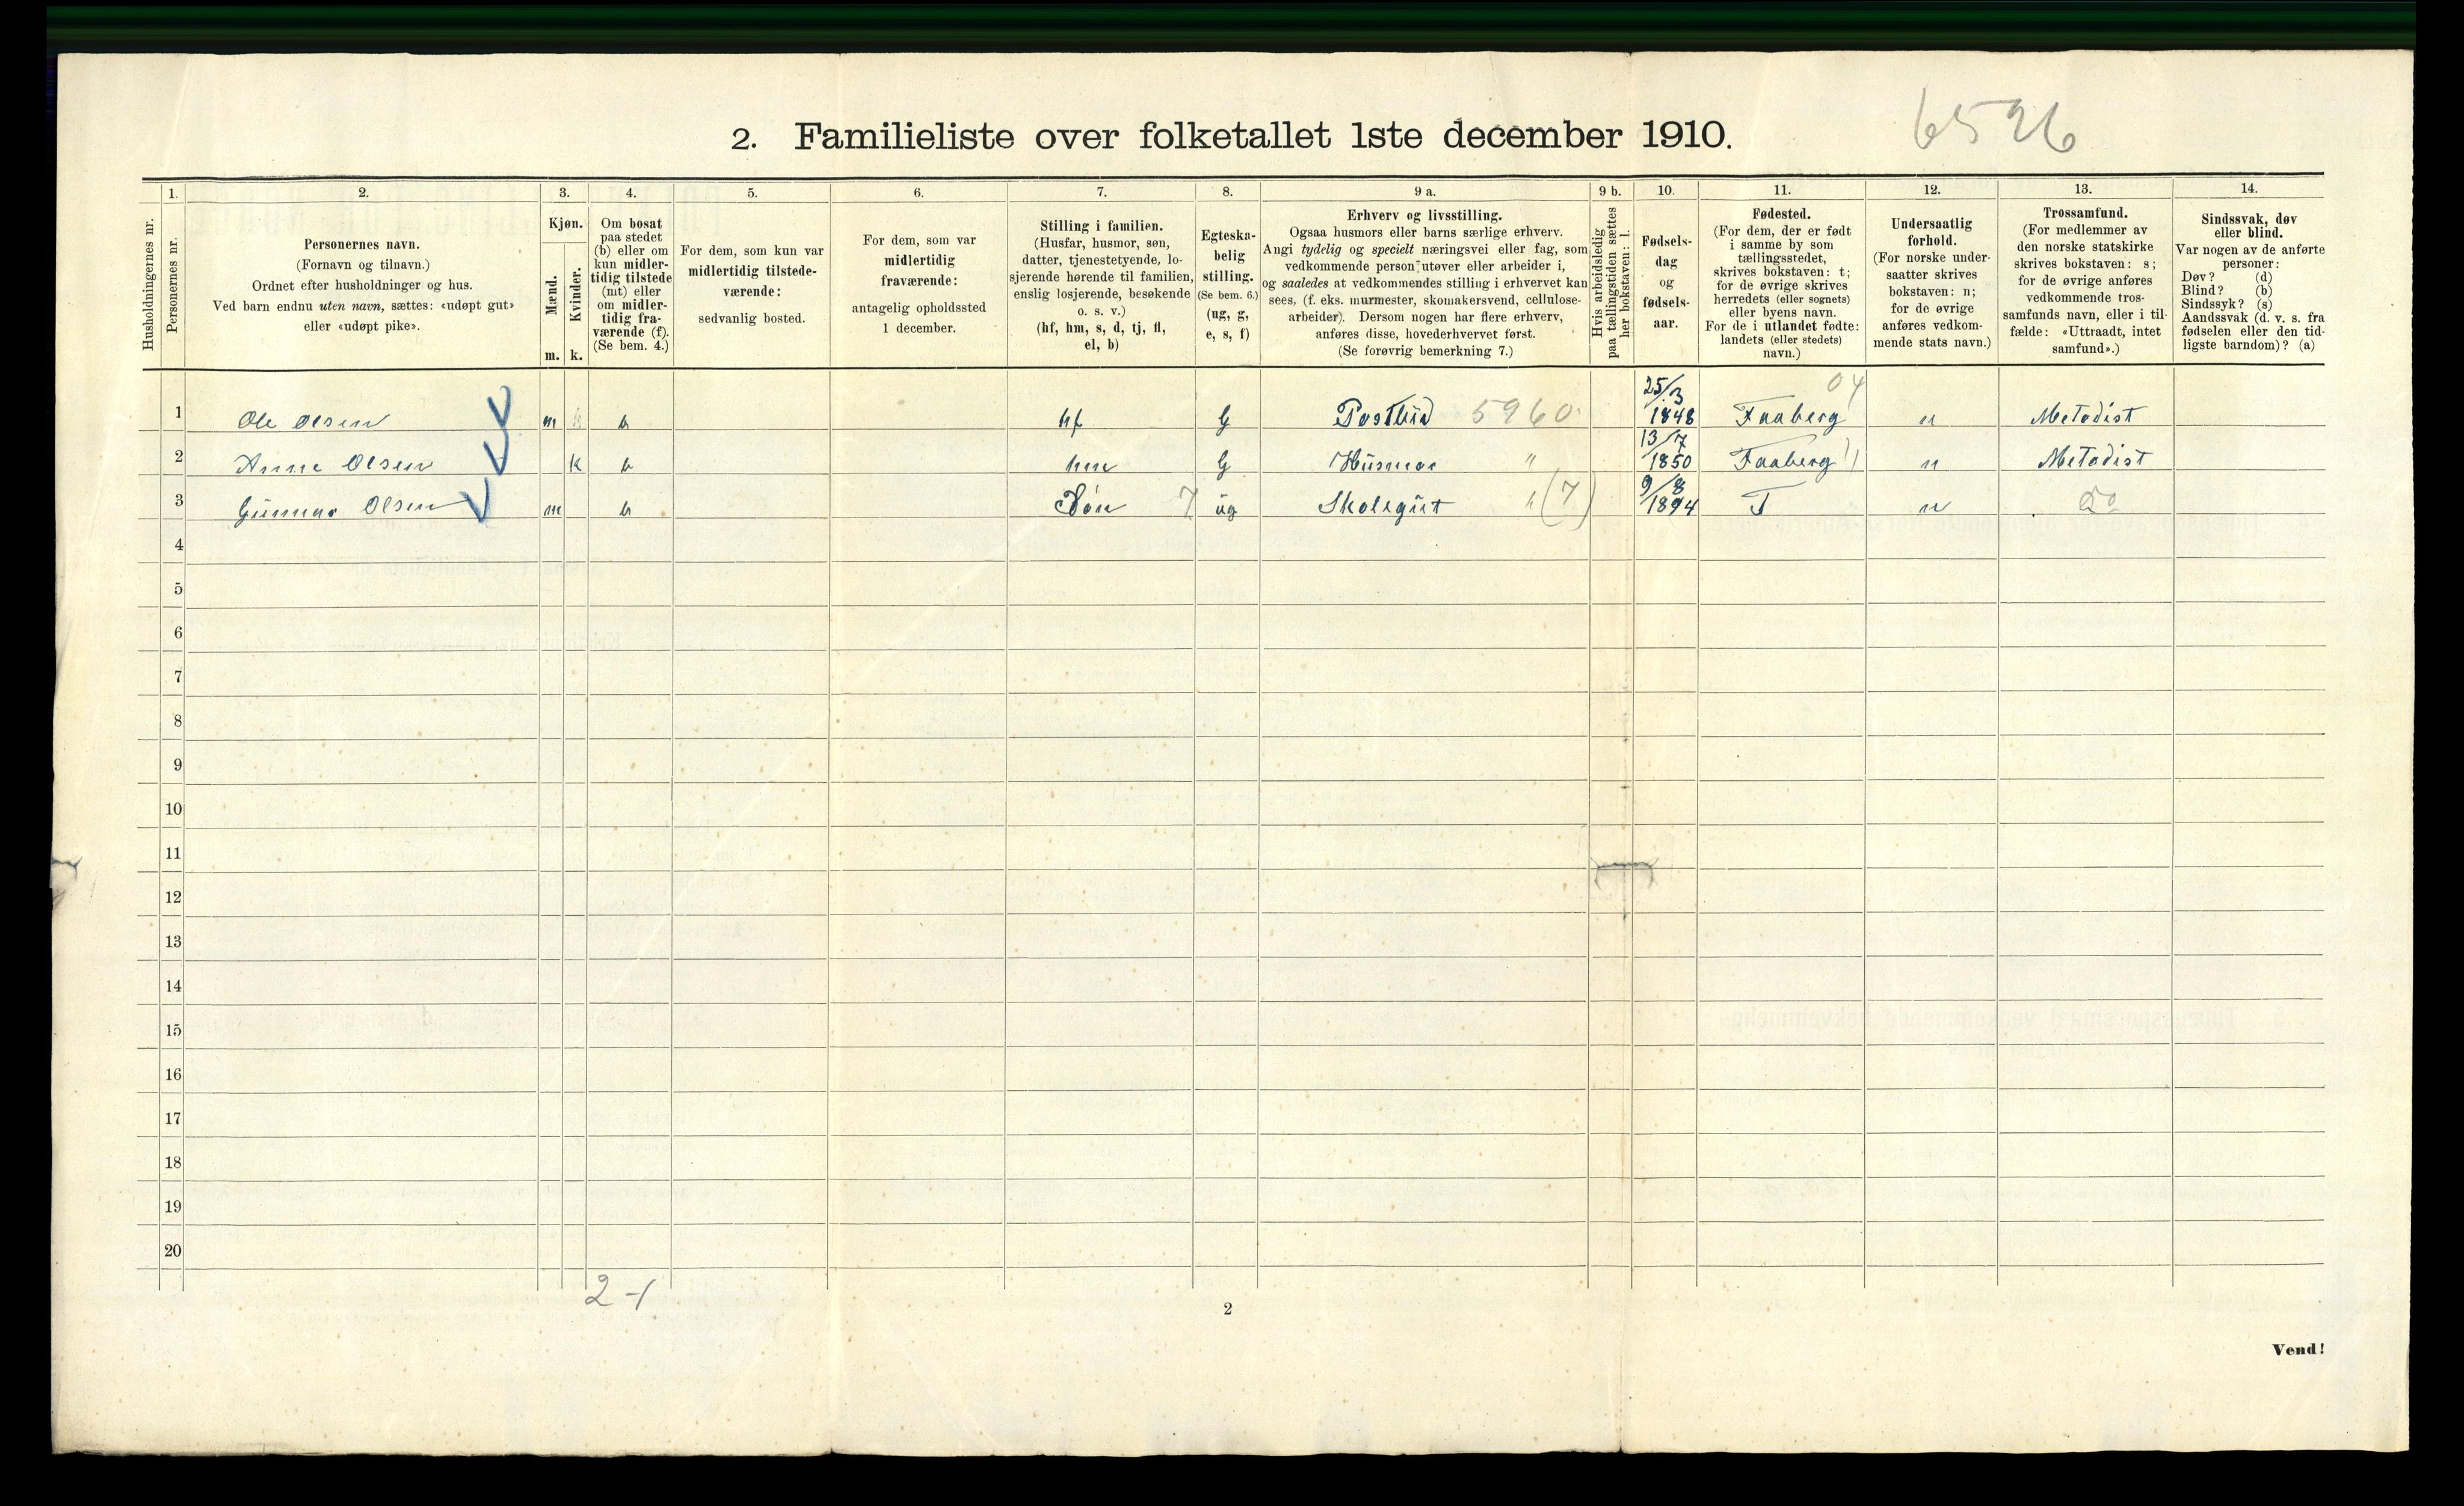 6526
2. Familieliste over folketallet 1ste december 1910.
Husholdningernes nr.
1.
Personernes nr.
2.
Personernes navn.
(Fornavn og tilnavn.)
Ordnet efter husholdninger og hus.
Ved barn endnu uten navn, sættes: «udøpt gut»
eller «udøpt pike».
3.
Kjøn.
Mænd.
Kvinder.
m. k.
4.
Om bosat
paa stedet
(b) eller om
kun midler-
tidig tilstede
(mt) eller
om midler-
tidig fra-
værende (f).
(Se bem. 4.)
5.
For dem, som kun var
midlertidig tilstede-
værende:
sedvanlig bosted.
6.
For dem, som var
midlertidig
fraværende:
antagelig opholdssted
1 december.
7.
Stilling i familien.
(Husfar, husmor, søn,
datter, tjenestetyende, lo-
sjerende hørende til familien,
enslig losjerende, besøkende
o. s. v.)
(hf, hm, s, d, tj, fl,
el, b)
8.
Egteska-
belig
stilling.
(Se bem. 6.)
(ug, g,
e, s, f)
9 a.
Erhverv og livsstilling.
Ogsaa husmors eller barns særlige erhverv.
Angi tydelig og specielt næringsvei eller fag, som
vedkommende person utøver eller arbeider i,
og saaledes at vedkommendes stilling i erhvervet kan
sees, (f. eks. murmester, skomakersvend, cellulose-
arbeider). Dersom nogen har flere erhverv,
anføres disse, hovederhvervet først.
(Se forøvrig bemerkning 7.)
9 b.
Hvis arbeidsledig
paa tællingstiden sættes
her bokstaven: l.
10.
Fødsels-
dag
og
fødsels-
aar.
11.
Fødested.
(For dem, der er født
i samme by som
tællingsstedet,
skrives bokstaven: t;
for de øvrige skrives
herredets (eller sognets)
eller byens navn.
For de i utlandet fødte:
landets (eller stedets)
navn.)
12.
Undersaatlig
forhold.
(For norske under-
saatter skrives
bokstaven: n;
for de øvrige
anføres vedkom-
mende stats navn.)
13.
Trossamfund.
(For medlemmer av
den norske statskirke
skrives bokstaven: s;
for de øvrige anføres
vedkommende tros-
samfunds navn, eller i til-
fælde: «Uttraadt, intet
samfund».)
14.
Sindssvak, døv
eller blind.
Var nogen av de anførte
personer:
Døv? (d)
Blind? (b)
Sindssyk? (s)
Aandssvak (d. v. s. fra
fødselen eller den tid-
ligste barndom)? (a)
1 Ole Olsen m b hf G Postbud 5960 25/3 1848 Faaberg 04 n Metodist
2 Anne Olsen k b hm G Husmor " 13/7 1850 Faaberg " n Metodist
3 Gunnar Olsen m b Søn 7 ug Skolegut (7) 9/8 1894 T n Do
4
5
6
7
8
9
10
11
12
13
14
15
16
17
18
19
20
2 -1
2
Vend!